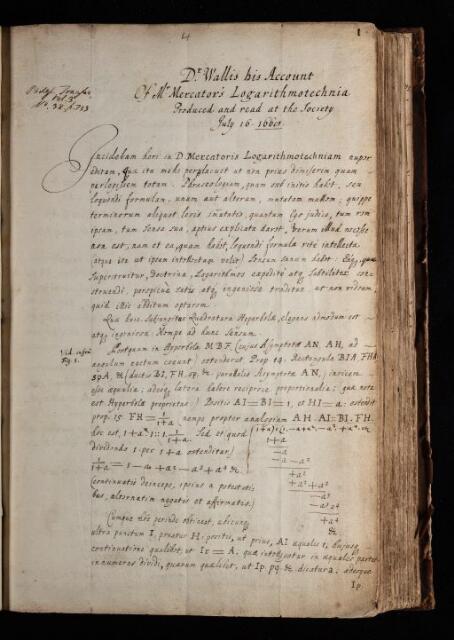 4
1
Dr. Wallis his Account
Of Mr. Mercator's Logarithmotechnia
Produced and read at the Society
July 16. 1668.
Philos. Transac.
Vol. 3.
No. 38. p. 753
Incidebam heri in D. Mercatoris Logarithmotechniam nuper
editam, Quæ ita mihi perplacuit ut non prius dimiserim quam
perlegissem totam. Phraseologiam, quam sub initio habet, seu
loquendi formulam, unam aut alteram, mutatam mallem; quippe
terminorum aliquot locis mutatis, quantum Ego judico, tum rem
ipsam, tum sensa sua, aptius explicata darit. Verum illud necesse
non est; nam et ea, quam habet, loquendi formula rite intellecta
(atque ita ut ipsum intellectum velit) sensum sanum habet: Eique, quæ
superstruitur, Doctrina, Logarithmos expedite atq; subtiliter con-
struendi, perspicue satis atq; ingeniose traditur ut non videam,
quid illic additum optarem.
Quæ huic subjungitur Quadratura Hyperbolæ, elegans admodum est
atq; ingeniosa. Nempe ad hunc sensum.
Vid. infra
Fig. 1.
Postquam in Hyperbola MBF, (cujus Asymptotæ AN, AH, ad
angulum rectum coeunt) ostenderat Prop. 14. Rectangula BIA, FHA
SPA, &c (ductis BI, FH, SP, &c parallelis Asymptotæ AN,) invicem
esse æqualia; adeoq; latera habere reciproce proportionalia; quæ nota
est Hyperbolæ proprietas: Positis AI=BI=1, et HI=a: ostendit
prop. 15. FH = 1/1+a (nempe propter analogiam AH. AI::BI. FH.
hoc est, 1+a. 1::1. 1/1+a. Sed et quod
dividendo 1 per 1+a ostenditur)
1/1+a = 1-a+a²-a³+a⁴ &c
(continuatis deinceps, ipsius a potestati-
bus, alternatim negatis et affirmatis.)
1+a) 1 (1-a+a²-a³+a⁴ &c
1+a
-a
-a-a²
+a²
+a²+a³
-a³
-a³-a⁴
+a⁴
&c
Cumque hoc perinde obtineat, ubicunq;
ultra punctum I, ponatur H: positis, ut prius, AI æqualis 1, hujusq;
continuatione qualibet, ut Ir = A, quæ intelligatur in æquales partes
innumeras dividi, quarum quælibet, ut Ip. pq. &c. dicatur a; aderque
Ip.